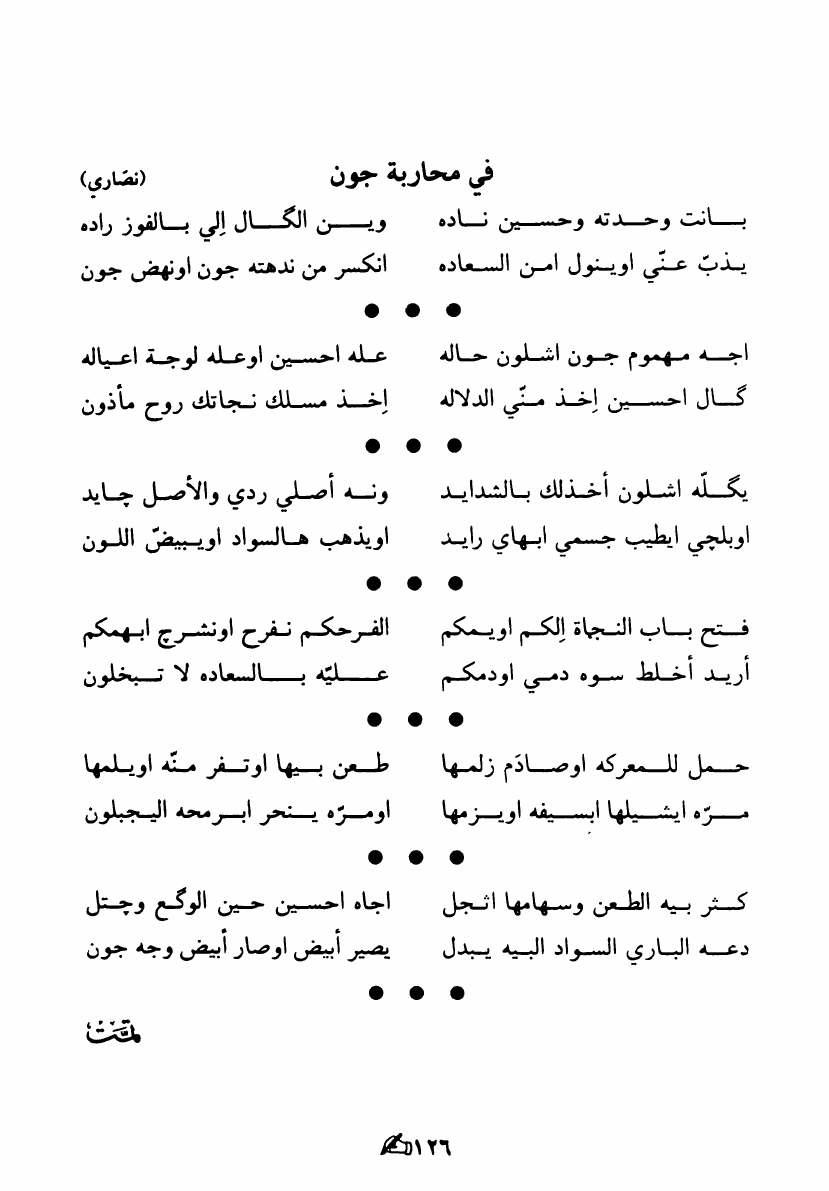 في محاربة جون (نصّاري)
بانت وحدته وحسين ناده وين الگال إلي بالفوز راده
يذبّ عنّي اوينول امن السعاده انكسر من ندهته جون اونهض جون
● ● ●
اجه مهموم جون اشلون حاله عله احسين اوعله لوجة اعياله
گال احسين إخذ منّي الدلاله إخذ مسلك نجاتك روح مأذون
● ● ●
يگلّه اشلون أخذلك بالشدايد ونه أصلي ردي والأصل چايد
اوبلچي ايطيب جسمي ابهاي رايد اويذهب هالسواد اويبيضّ اللون
● ● ●
فتح باب النجاة إلكم اويمكم الفرحكم نفرح اونشرچ ابهمكم
أريد أخلط سوه دمي اودمكم عليّه بالسعاده لا تبخلون
● ● ●
حمل للمعركه اوصادَم زلمها طعن بيها اوتفر منّه اويلمها
مرّه ايشيلها ابسيفه اويزمها اومرّه ينحر ابرمحه اليجبلون
● ● ●
كثر بيه الطعن وسهامها اثجل اجاه احسين حين الوگع وچتل
دعه الباري السواد البيه يبدل يصير أبيض اوصار أبيض وجه جون
● ● ●
تمّت
١٢٦